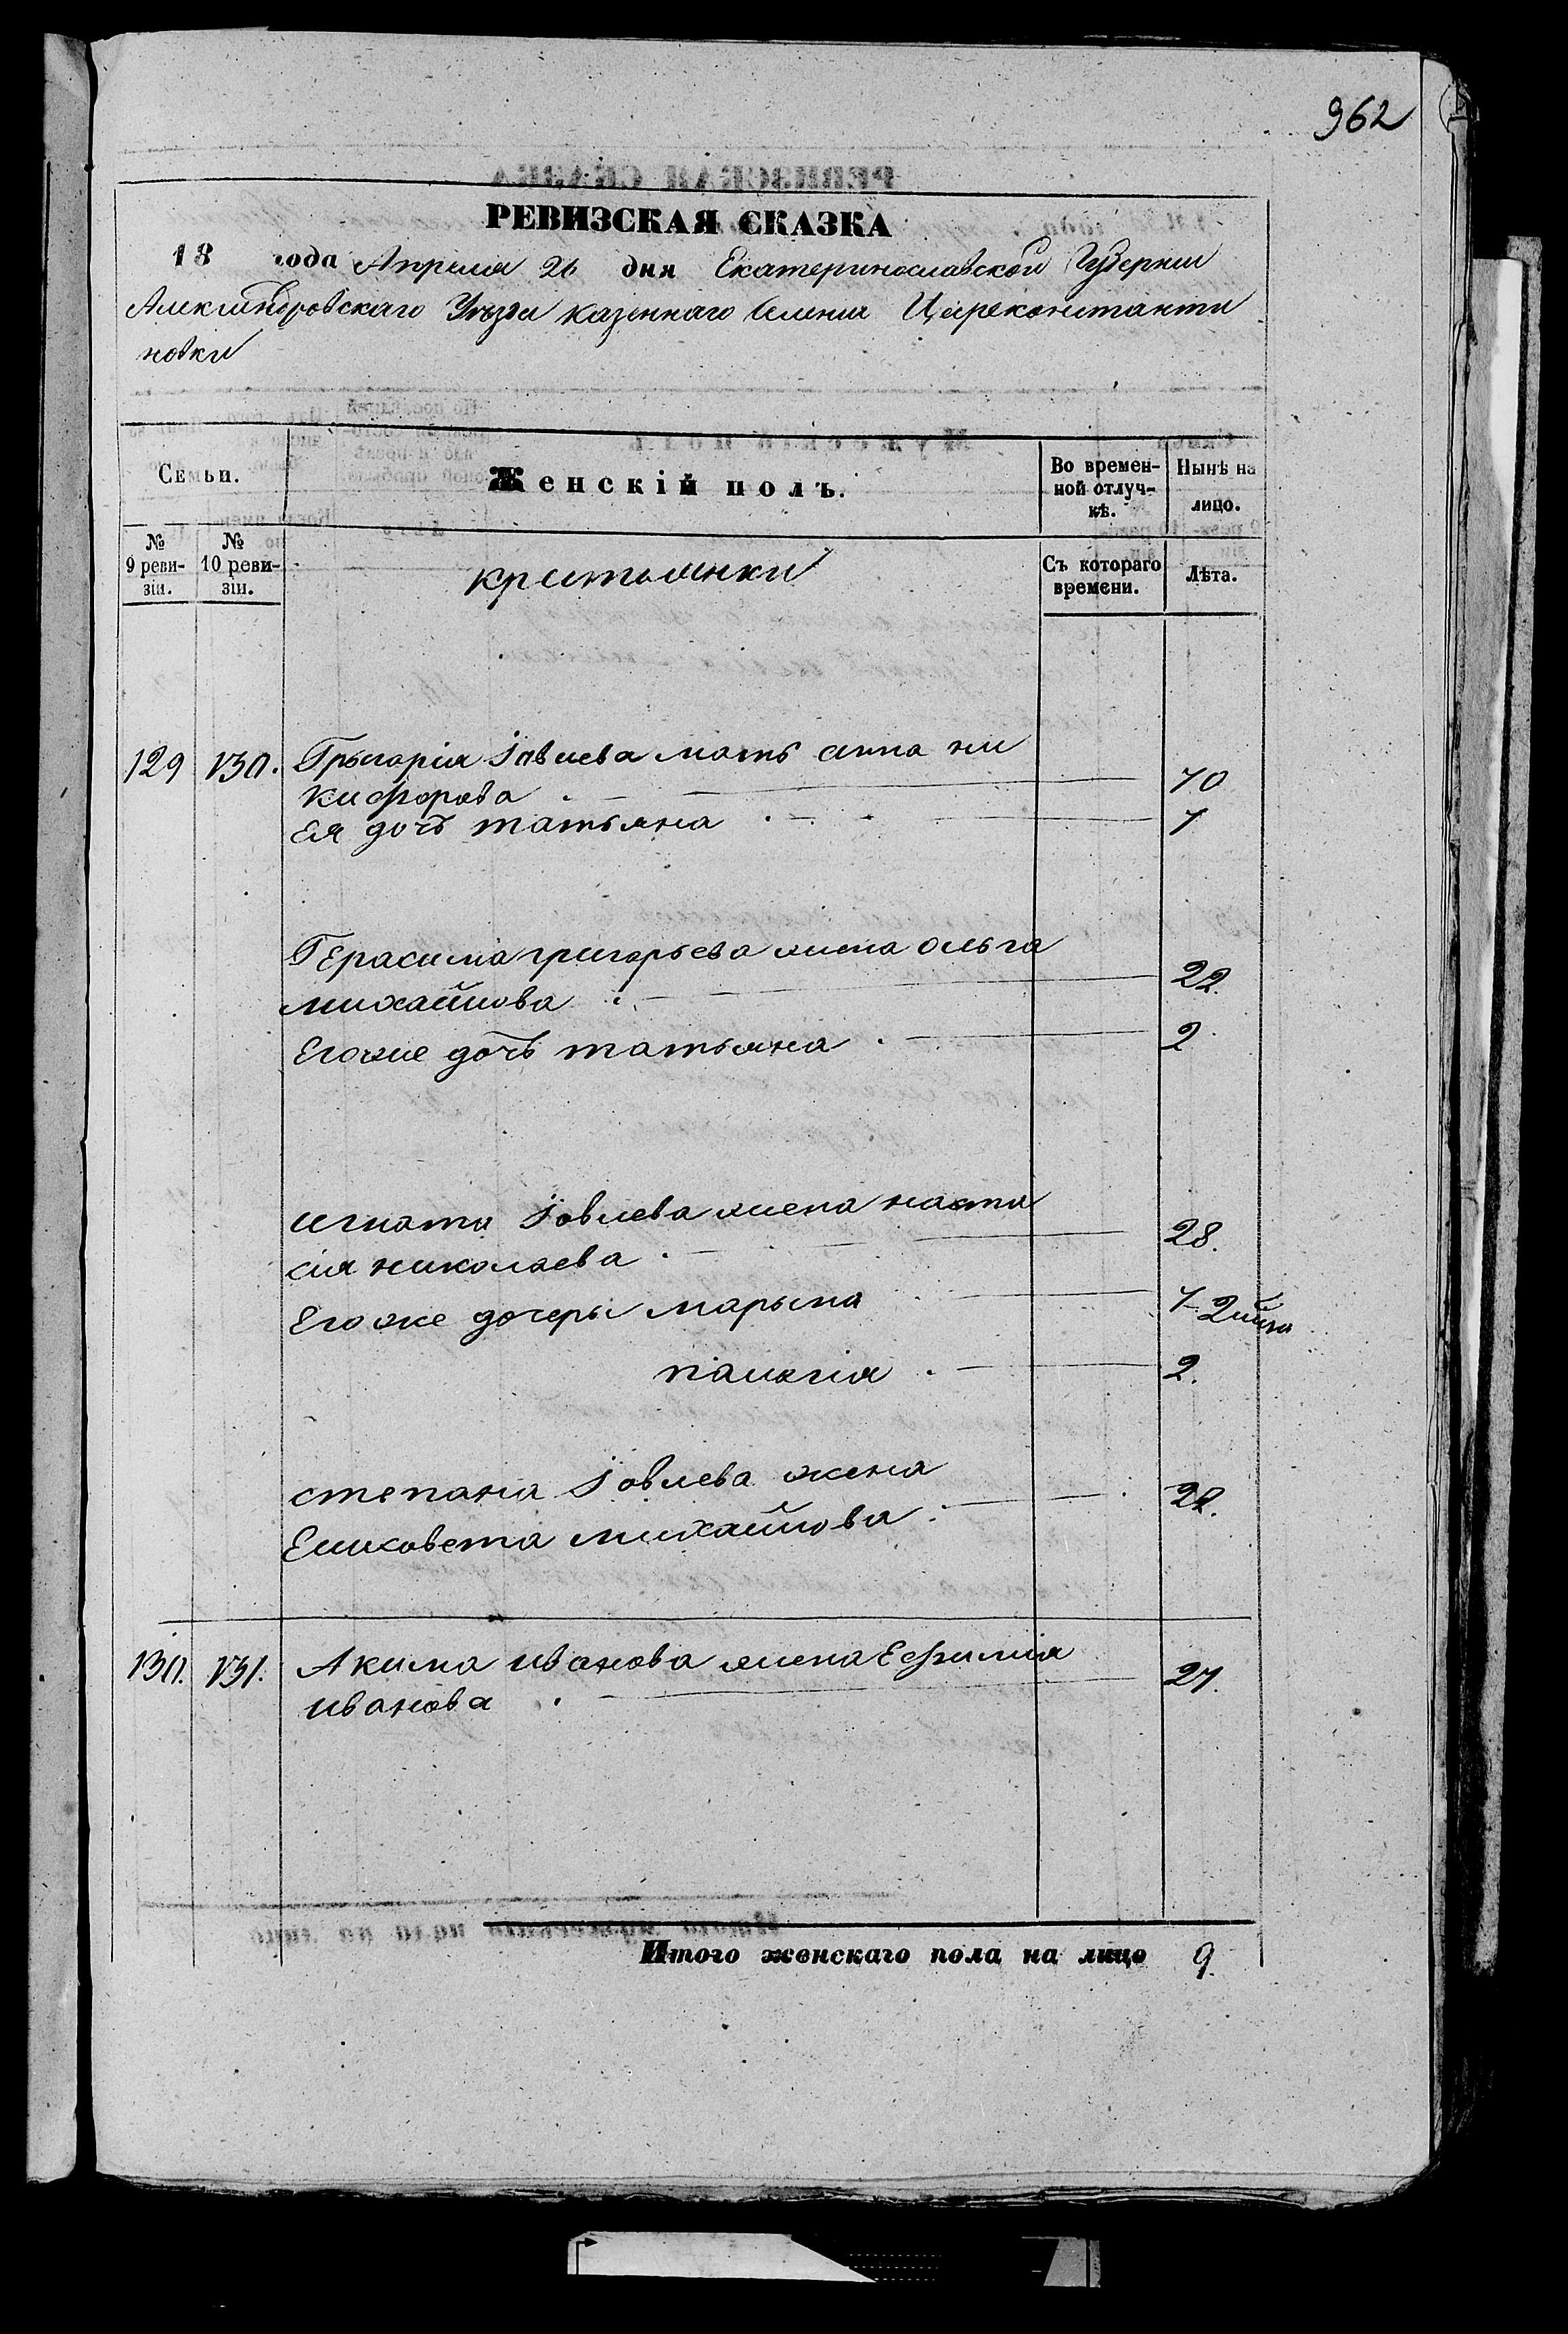 962
РЕВИЗСКАЯ СКАЗКА
18 года Апреля 26 дня Екатеринославской Губернии
Александровскаго Уезда казеннаго Селения Цареконстанти
новки
Семьи.
Женскій полъ.
Во времен-
ной отлуч-
кѣ.
Нынѣ на
лицо.
№
9 реви-
зіи.
№
10 реви-
зіи.
крестьянки
Съ котораго
времени.
Лѣта.
129 130. Грыгорія Іовлева мать анна ни
кифорова 70
Ея дочь татьяна 7
Герасима григорьева жена ольга
михайлова 22.
Егоже дочь татьяна 2
игната Іовлева жена наста
сія николаева 28.
Егоже дочеры марына 7
палагія 2.
степана Іовлева жена
Елисовета михайлова 22.
130. 131. Акима иванова жена Ефимія
иванова 27.
Итого женскаго пола на лицо 9.